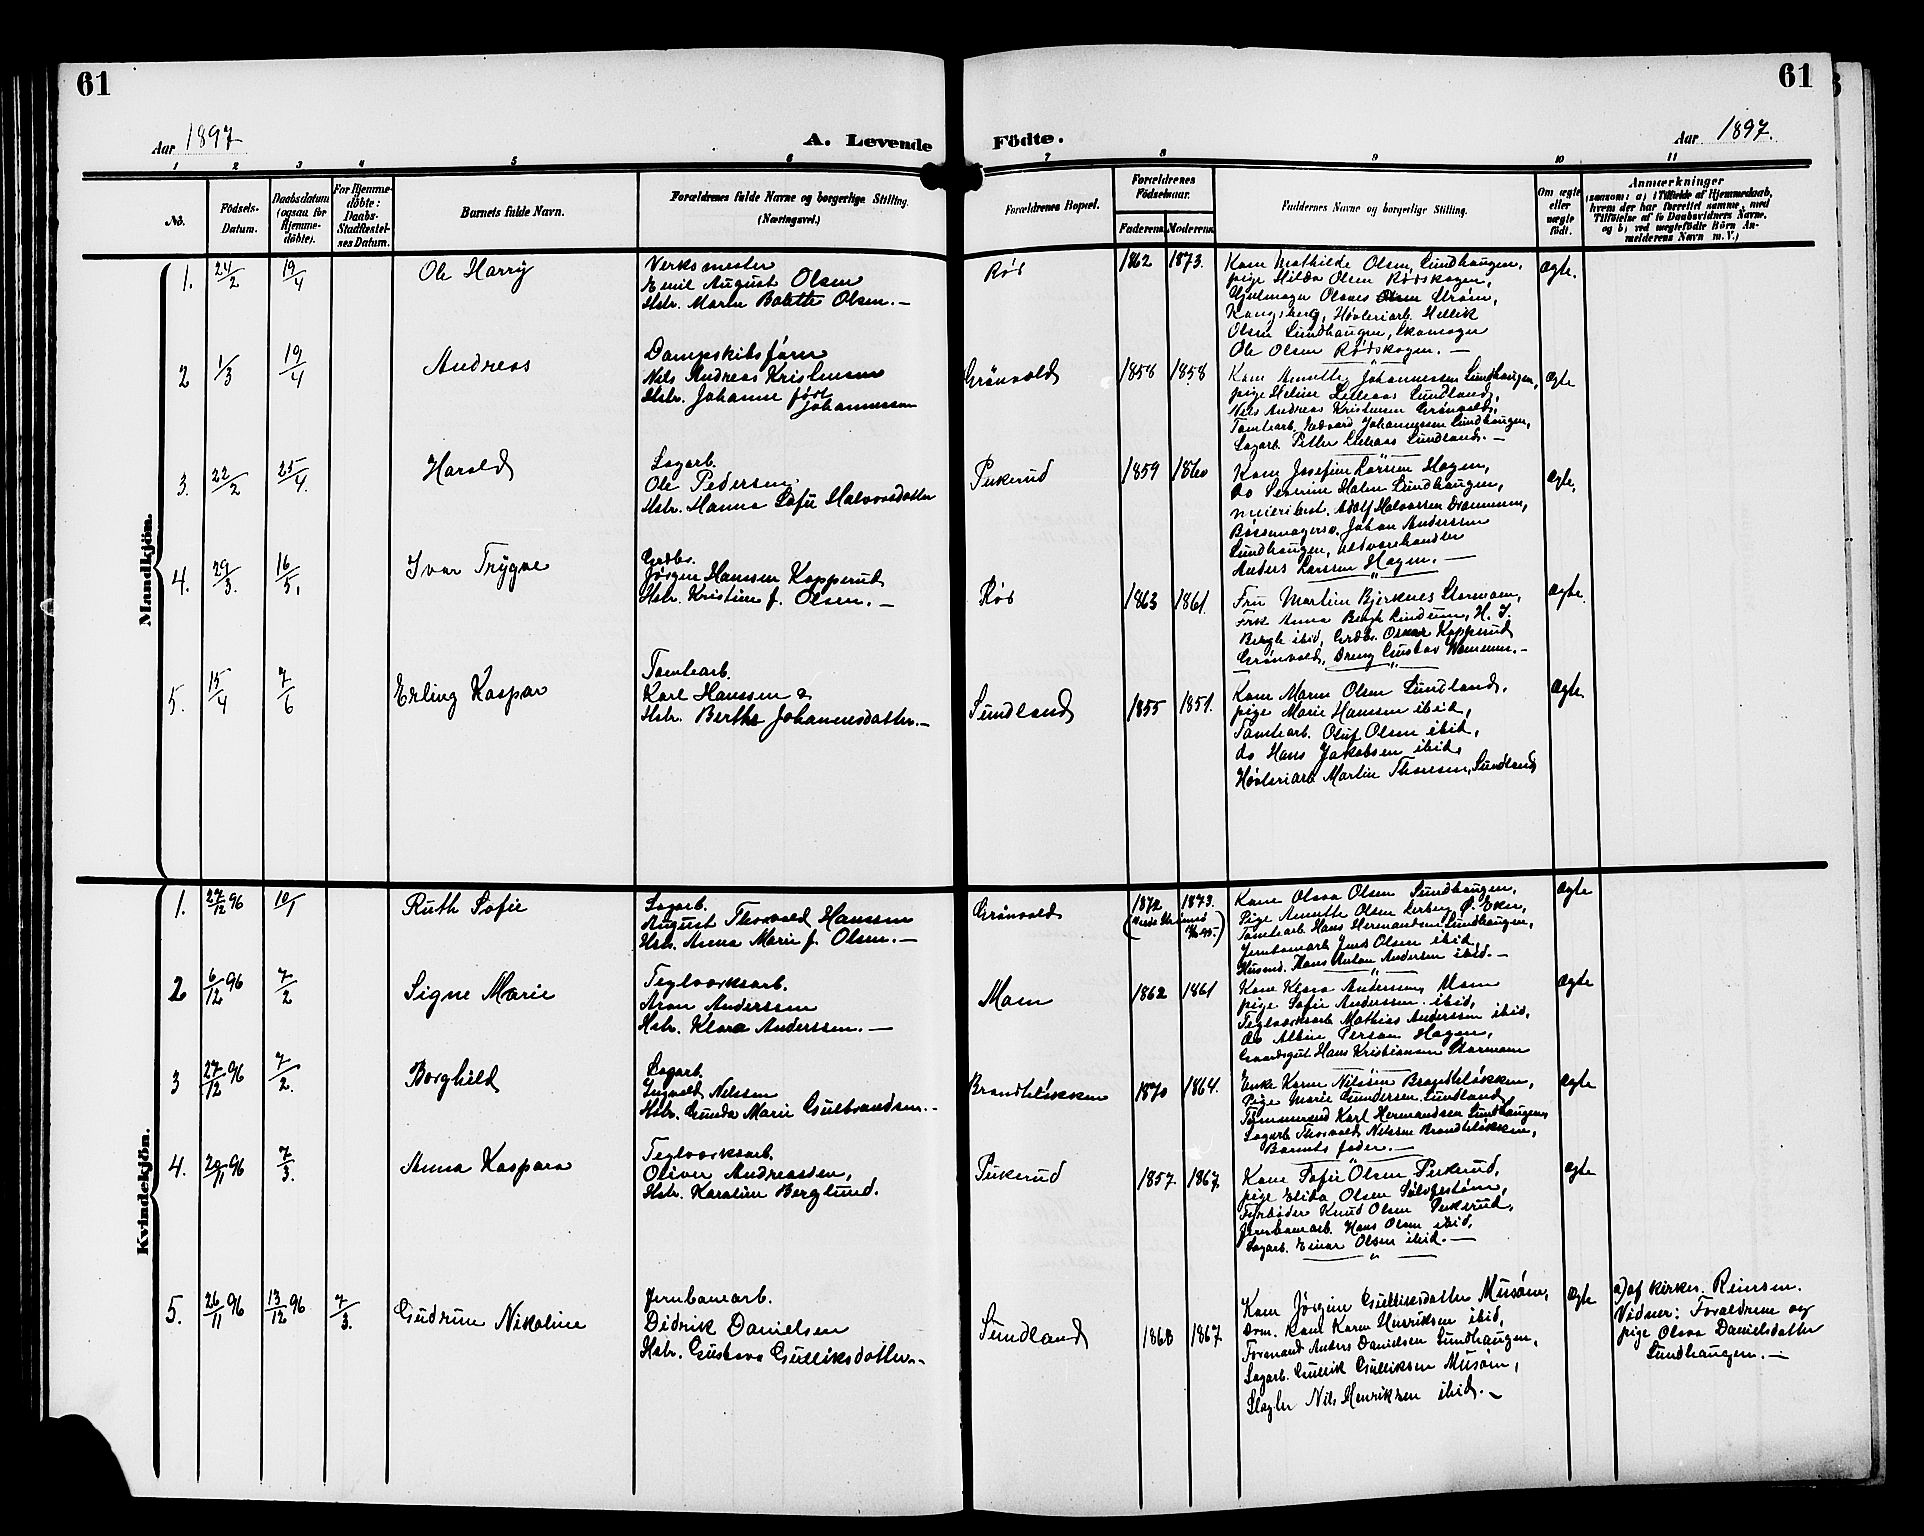 61
61
Aar 1897
A. Levende
Födte.
Aar 1897.
1 2 3 4 5 6 7 8 9 10 11
No.
Födsels-
Datum.
Daabsdatum
(ogsaa for
Hjemme-
döbte).
For Hjemme-
döbte:
Daabs-
Stadfæstel-
ses Datum.
Barnets fulde Navn.
Forældrenes fulde Navne og borgerlige Stilling.
(Næringsvei.)
Forældrenes Bopæl.
Forældrenes
Födselsaar.
Faderens
Moderens
Faddernes Navne og borgerlige Stilling.
Om ægte
eller
uægte
födt.
Anmærkninger
(saasom: a) i Tilfælde af Hjemmedaab,
hvem der har forrettet samme, med
Tilföielse af to Daabsvidners Navne,
og b) ved uægtefödte Börn An-
melderens Navn m. V.)
Mandkjön.
1. 24/2 19/4
Ole Harry
Verksmester
Emil August Olsen
Hstr. Maren Bolette Olsen. —
Rød
1862 1873.
Kone Mathilde Olsen, Sundhaugen,
pige Hilda Olsen Rødskogen,
Hjulmager Olaves Strøm,
Kongsberg, Høvleriarb. Hellik
Olsen Sundhaugen, Skomager
Ole Olsen Rødskogen. —
ægte.
2 1/3 19/4
Andreas
Dampskibsfører
Nils Andreas Kristensen
Hstr. Johanne født
Johannessen
Grönvold
1858 1858
Kone Annette Johannessen Sundhaugen,
pige Heline Lilleaas Sundland,
Nils Andreas Kristensen Grönvold,
Tomtearb. Edvard Johannessen Sundhaugen,
Sagarb. Petter Lilleaas Sundland. —
ægte
3. 22/2 25/4.
Harald
Sagarb.
Ole Pedersen
Hstr. Hanna Sofie Halvorsdatter
Pukerud
1859 1860
Kone Josefine Larsen Hagen,
do Severine Holm Sundhaugen,
meieribest. Adolf Halvorsen Drammen,
Bøssemagersv. Johan Andersen
Sundhaugen, Uldvarehandler
Anders Larsen Hagen. —
ægte.
4. 29/3. 16/5.
Ivar Trygve
Grdbr.
Jørgen Hansen Kopperud
Hstr. Kristine f. Olsen. —
Rød
1863 1861.
Fru Martine Bjerknes Stormoen,
Frk Anna Bergh Lindum, H. J.
Bergh ibid, Grdbr. Oskar Kopperud
Grönvold, Dreng Gustav —
ægte.
5. 15/4 7/6
Erling Kaspar
Tomtearb.
Karl Hanssen &
Hstr. Berthe Johannesdatter. —
Sundland
1855 1851.
Kone Maren Olsen Sundland,
pige Marie Hanssen ibid,
Tomtearb. Oluf Olsen ibid,
do Hans Jakobsen ibid,
Høvleriarb Martin Thoresen, Sundland
ægte
Kvindekjön.
1. 27/12 96 10/1
Ruth Sofie
Sagarb.
August Thorvald Hanssen
Hstr. Anna Marie f. Olsen. —
Grönvold
1872 1873.
Kone Olava Olsen Sundhaugen,
Pige Annette Olsen Lerberg Ø. Eker,
Tomtearb. Hans Hermandsen Sundhaugen,
Jernbanearb. Jens Olsen ibid,
Husmd. Hans Anton Andersen ibid. —
ægte
2 6/12 96 7/2
Signe Marie
Teglverksarb.
Aron Anderssen
Hstr. Klara Anderssen. —
Moen
1862 1861
Kone Klara Anderssen, Moen
pige Sofie Anderssen ibid,
Teglverksarb Mathias Anderssen ibid,
do Albin Person Hagen,
Gaardsgut Hans Kristiansen Stormoen
ægte
3 27/12 96 7/2.
Borghild
Sagarb.
Ingvald Nilssen
Hstr. Gunda Marie Gulbrandsen. -
Brandtløkken
1870 1864.
Enke Karen Nilssen Brandtløkken,
Pige Marie Gundersen Sundland
Tømmermd Karl Hermandsen Sundhaugen,
Sagarb Thorvald Nilssen Brandtløkken,
Barnets fader. —
ægte
4. 29/11 96 7/3.
Anna Kaspara
Teglverksarb.
Oliver Andreassen,
Hstr. Karoline Berglund.
Pukerud
1857. 1867
Kone Sofie Olsen Pukerud,
pige Elida Olsen Sølvfestøen,
Fyrbøder Knud Olsen Pukerud,
Jernbanearb. Hans Olsen ibid,
Sagarb. Einar Olsen ibid. —
ægte
5. 26/11 96 13/12 96 7/3.
Gudrun Nikoline
Jernbanearb.
Didrik Danielsen
Hstr. Gustava Gulliksdatter. -
Sundland
1868 1867
Kone Jörgine Gulliksdatter Musöen,
Drm. Kone Karen Henriksen ibid,
Formand Anders Danielsen Sundhaugen,
Sagarb. Gullik Gulliksen Musöen,
Slagter Nils Henriksen ibid. —
ægte
a) af kirkes. Reiersen.
Vidner: Forældrene og
pige Olava Danielsdatter
Sundhaugen. —